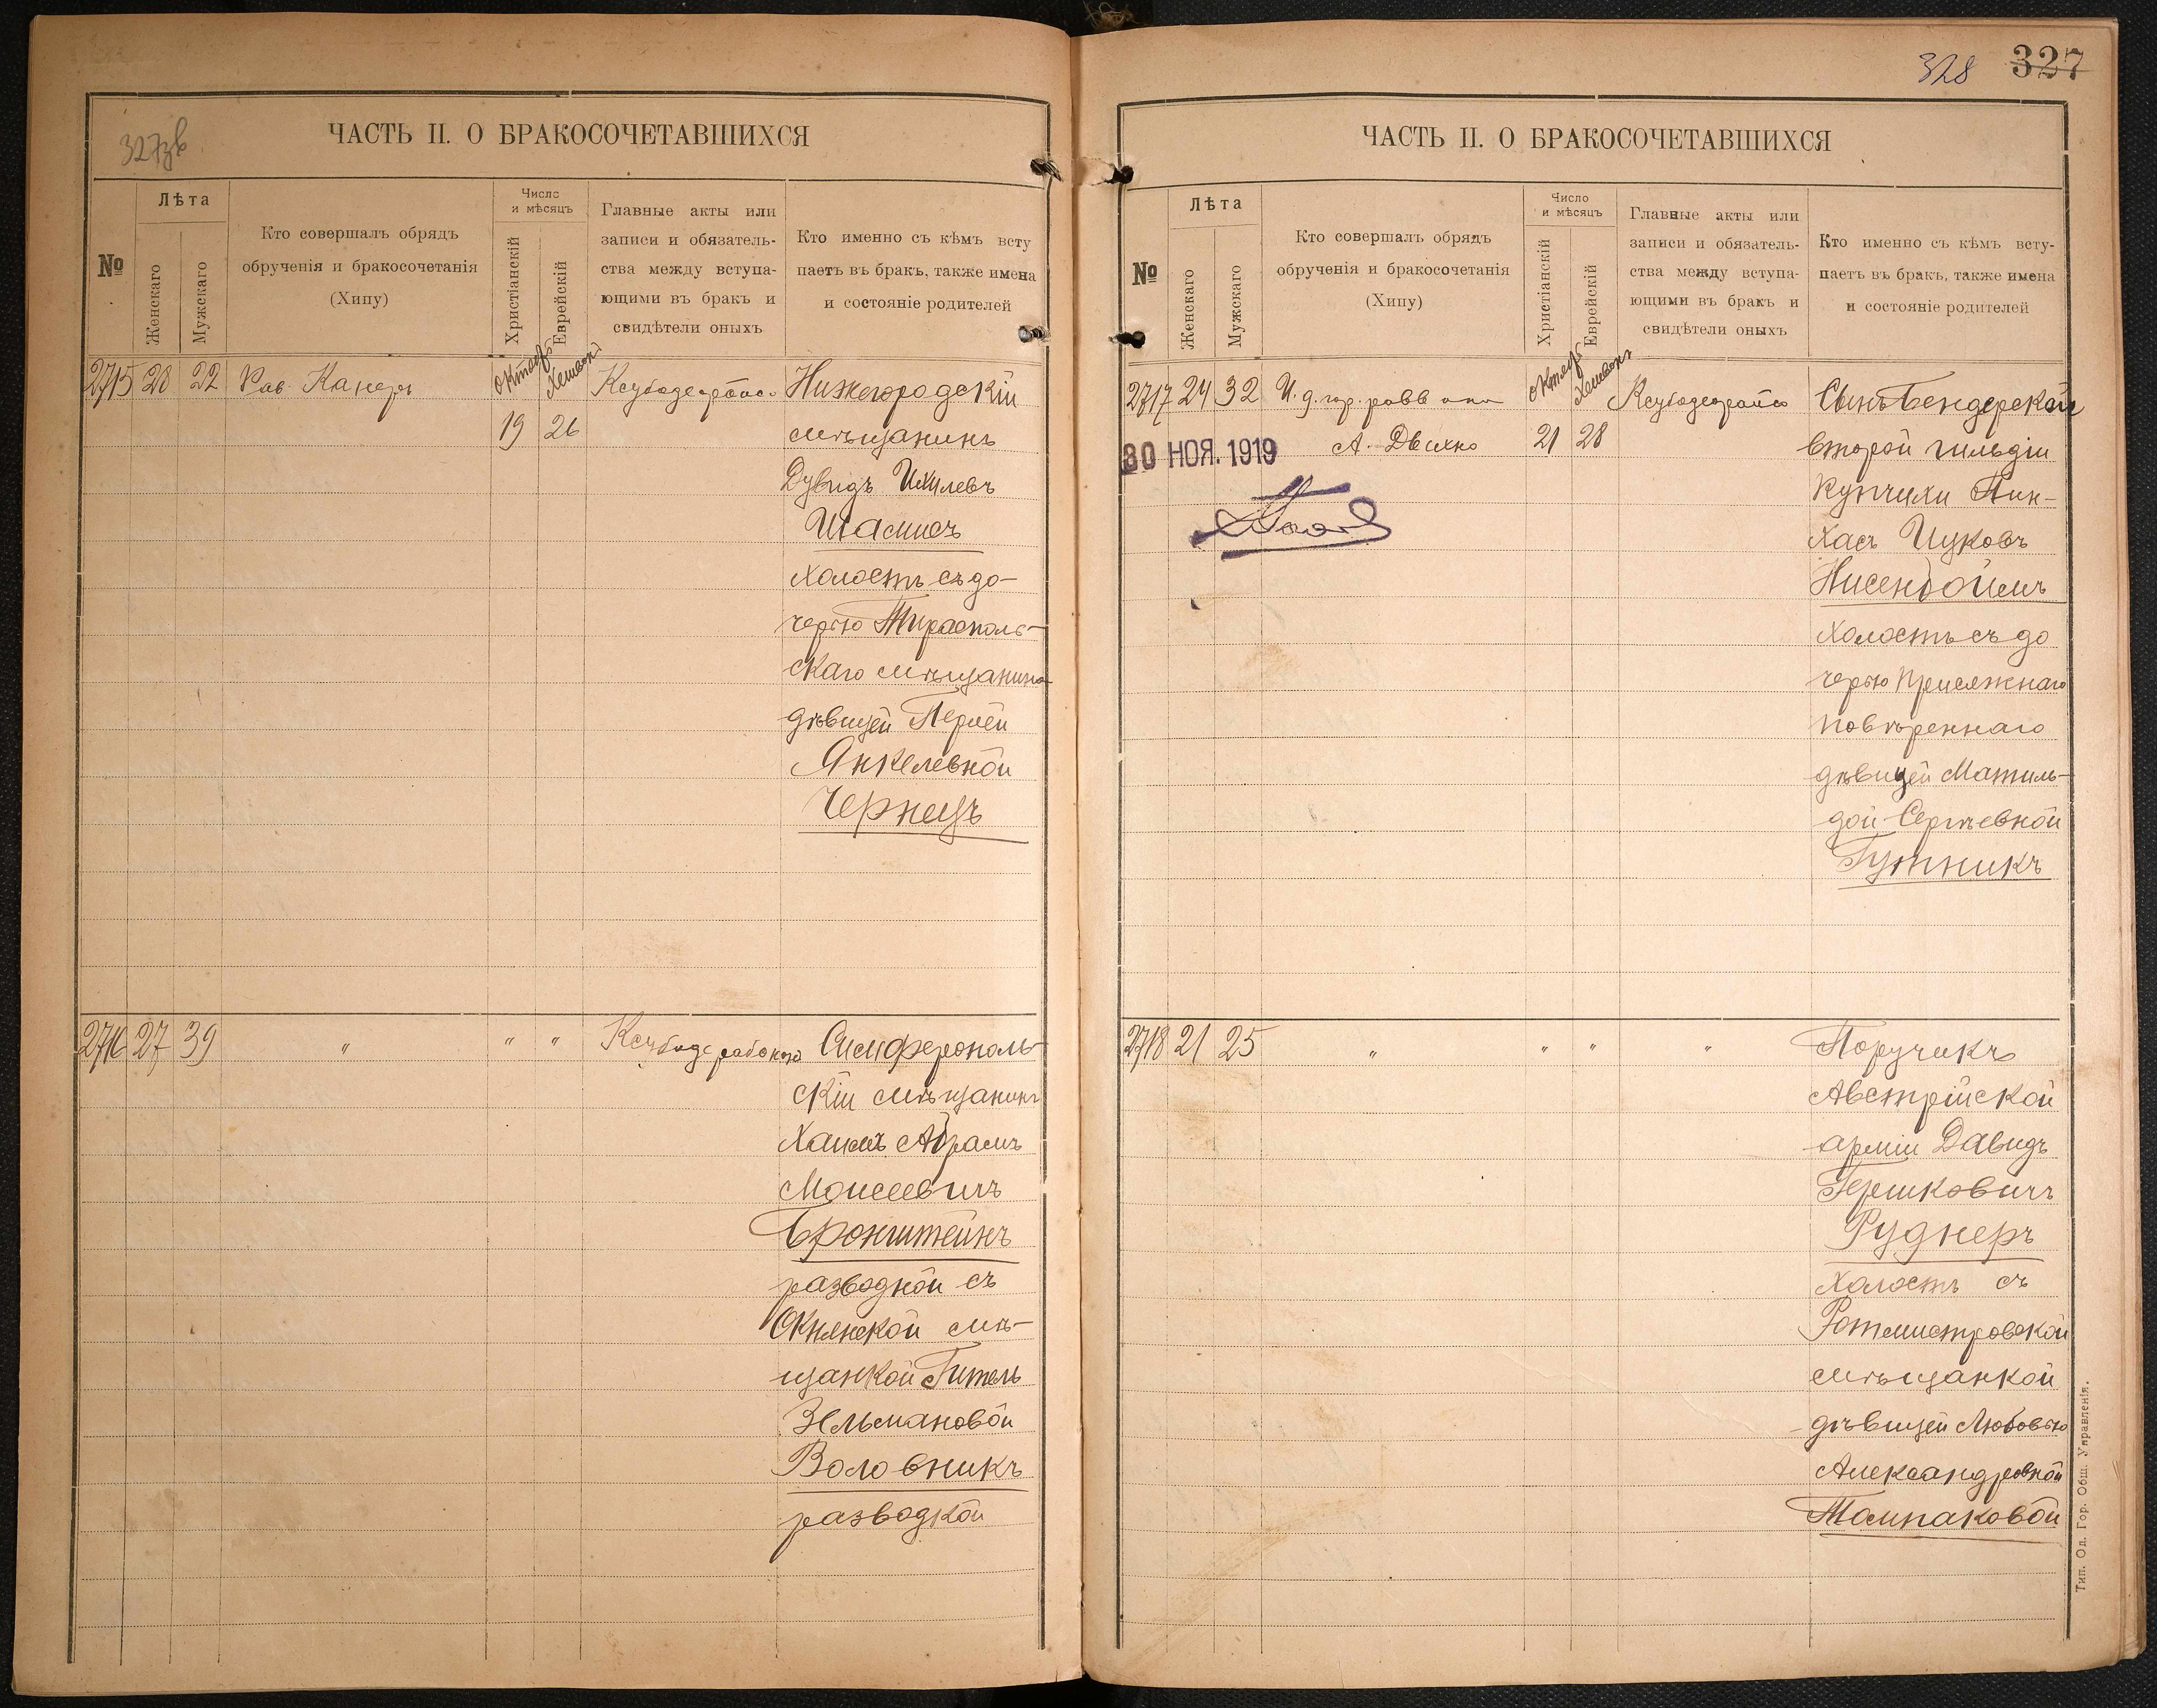 327зв
ЧАСТЬ II. О БРАКОСОЧЕТАВШИХСЯ
№
Лѣта
Женскаго
Мужскаго
Кто совершалъ обрядъ
обрученія и бракосочетанія
(Хипу)
Число
и мѣсяцъ
Христіанскій
Еврейскій
Главные акты или
записи и обязатель-
ства между вступа-
ющими въ бракъ и
свидѣтели оныхъ
Кто именно съ кѣмъ всту
паетъ въ бракъ, также имена
и состояніе родителей
2715 28 22 Рав. Канеръ Октябр Хешвон Нижегородскій
19 26 мѣщанинъ
Дувидъ Ихилевъ
Шамисъ
холостъ съ до-
черью Тирасполь-
скаго мѣщанина
дѣвицей Перлей
Янкелевной
Чернецъ
2716 27 39 " " " Симферополь-
скій мѣщанинъ
Хаимъ Абрамъ
Моисеевичъ
Бронштейнъ
разводной съ
Окнянской мѣ-
щанкой Гитель
Зельмановой
Воловникъ
разводкой
328 327
ЧАСТЬ II. О БРАКОСОЧЕТАВШИХСЯ
№
Лѣта
Женскаго
Мужскаго
Кто совершалъ обрядъ
обрученія и бракосочетанія
(Хипу)
Число
и мѣсяцъ
Христіанскій
Еврейскій
Главные акты или
записи и обязатель-
ства между вступа-
ющими въ бракъ и
свидѣтели оныхъ
Кто именно съ кѣмъ всту-
паетъ въ бракъ, также имена
и состояніе родителей
2717 24 32 И. д. гор. равв Октябр Хешвон Сынъ Бендерской
30 НОЯ. 1919 А. 21 28 второй гильдіи
купчихи Пин-
хасъ Ицковъ
Нисенбоймъ
холостъ съ до
черью Присяжнаго
повѣреннаго
дѣвицей Матиль-
дой Сергѣевной
Гутникъ
2718 21 25 " " " " Поручикъ
Австрійской
арміи Давидъ
Гершковичъ
Руднеръ
холостъ съ
Ротмистровской
мѣщанкой
дѣвицей Любовью
Александровной
Томпаковой
Тип. Од. Гор. Общ. Управленія.